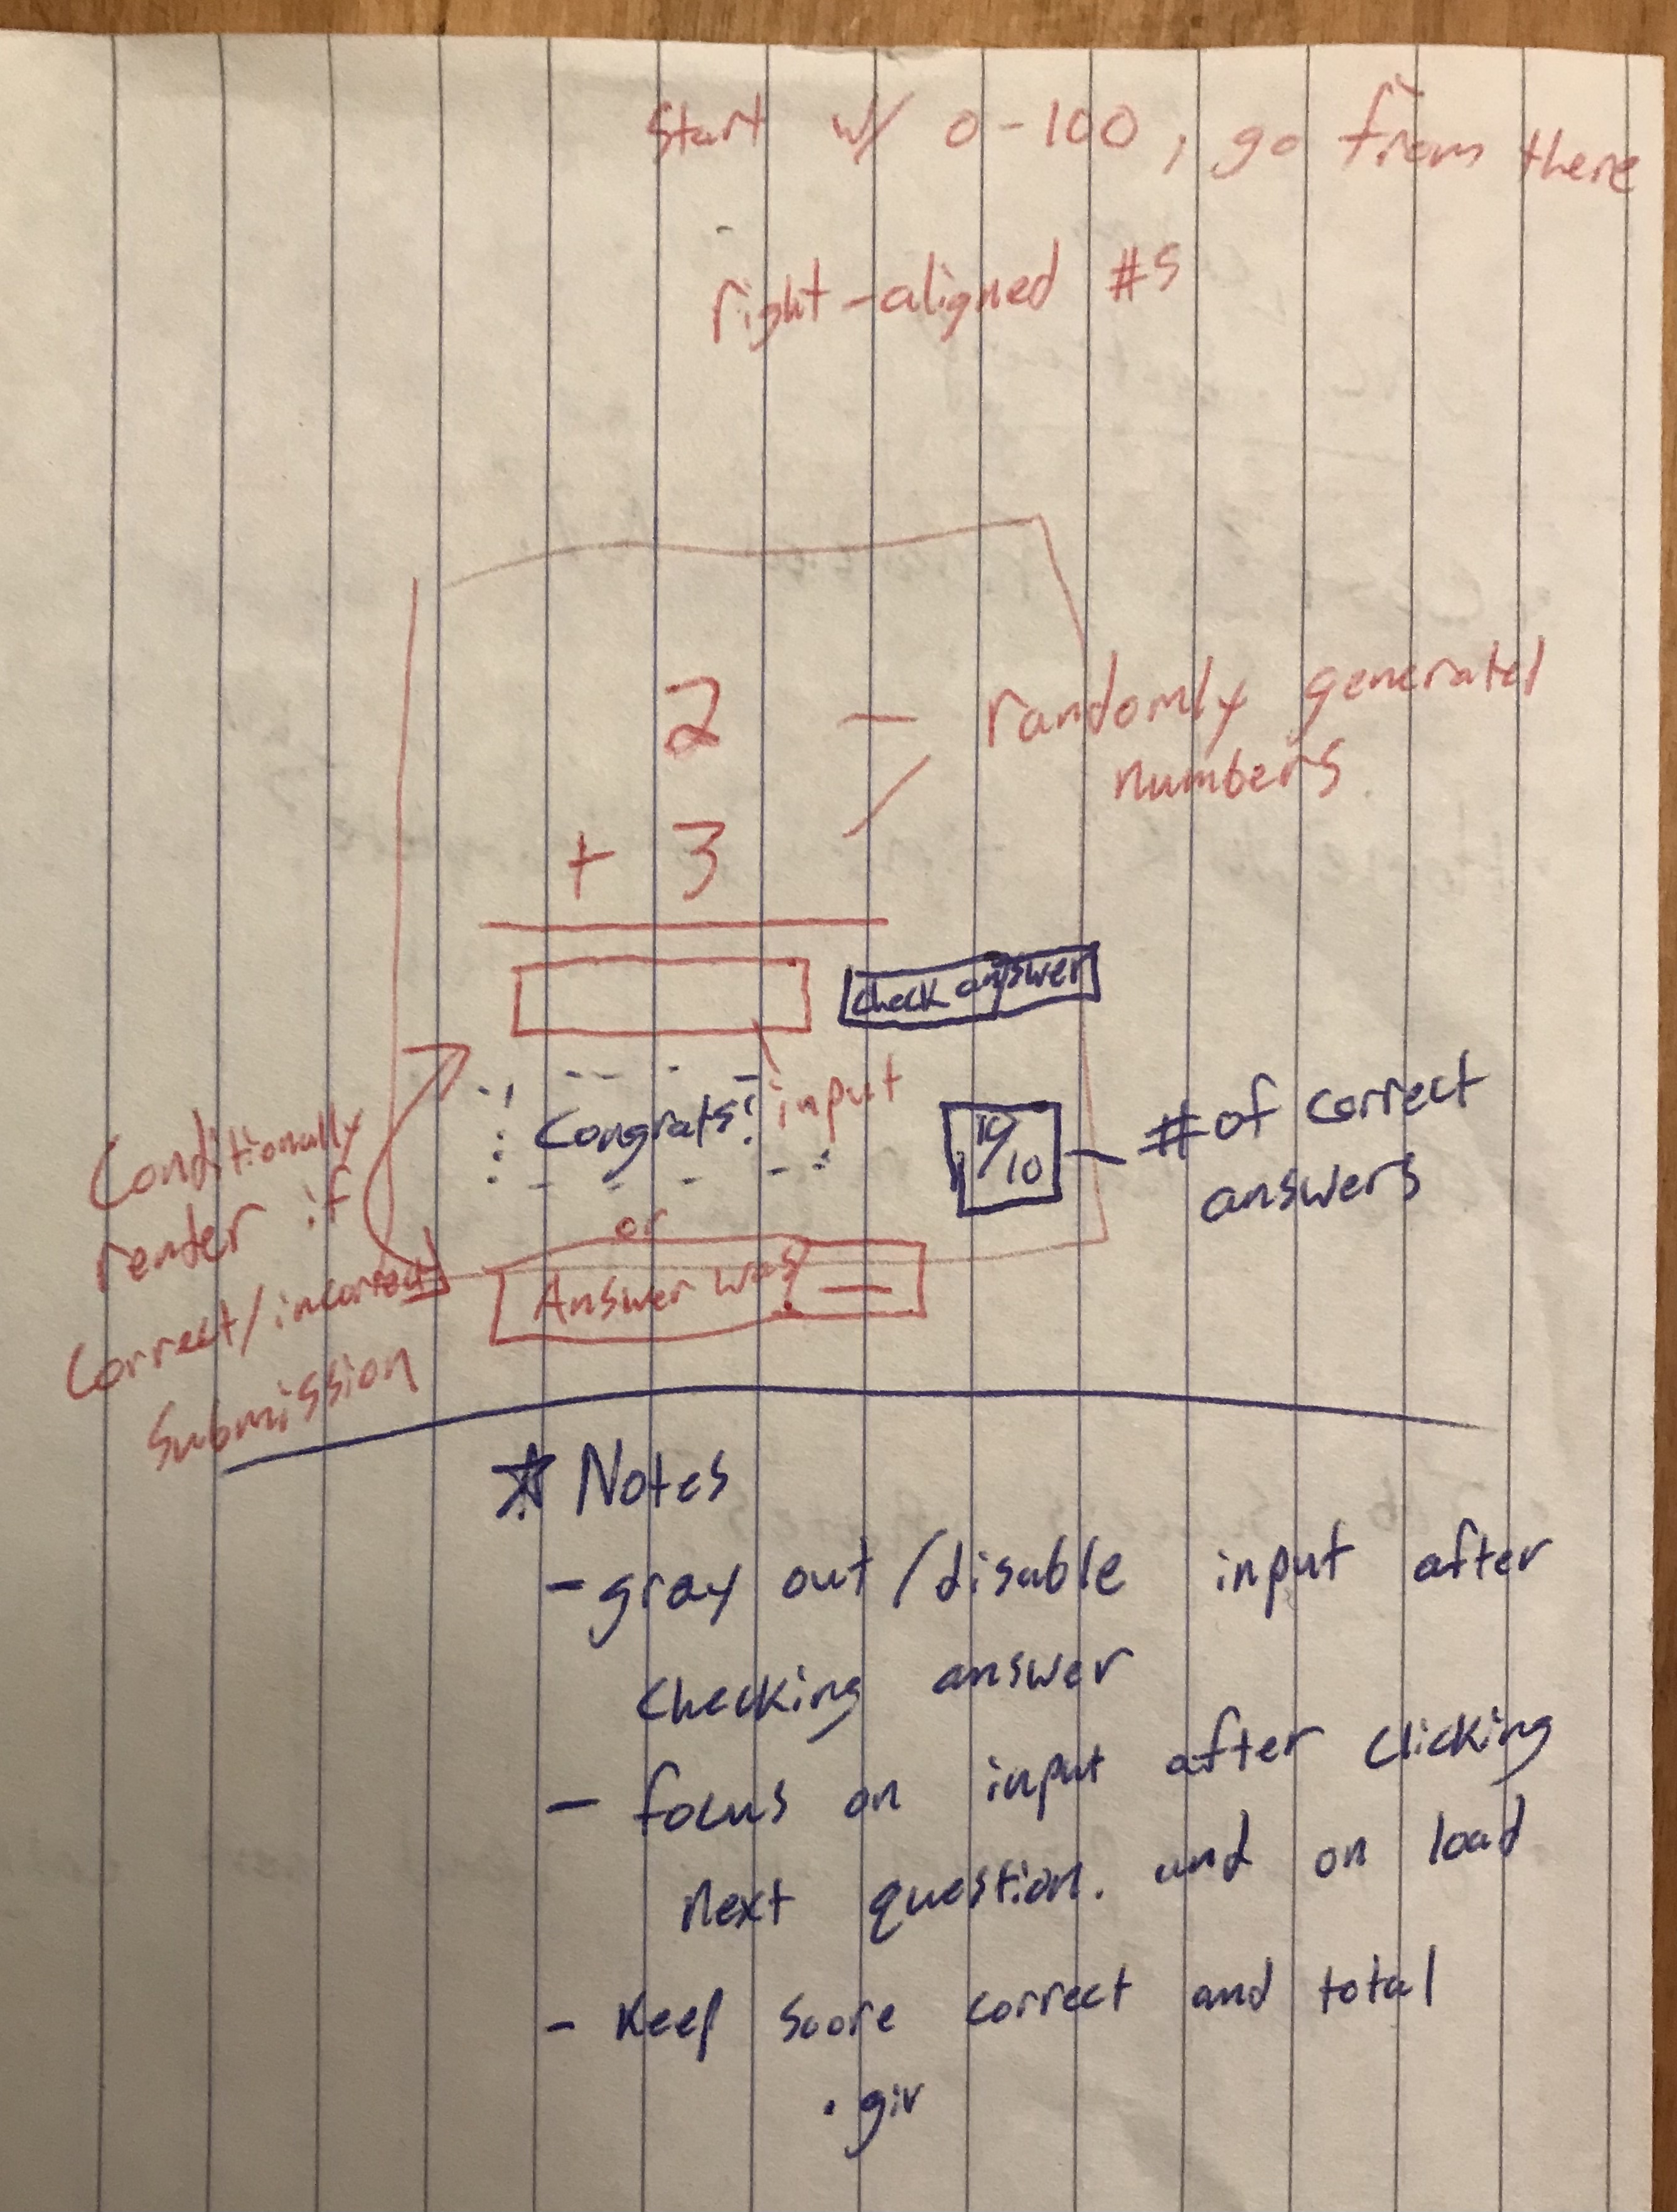 Start w/ 0-100, go from there
right-aligned #s
2
randomly generated
numbers
+ 3
check answer
input
Congrats!
10/10
# of correct
answers
or
Answer was
Conditionally
render if
correct/incorrect
submission
Notes
- gray out/disable input after
checking answer
- focus on input after clicking
next question. and on load
- Keep score correct and total
· giv